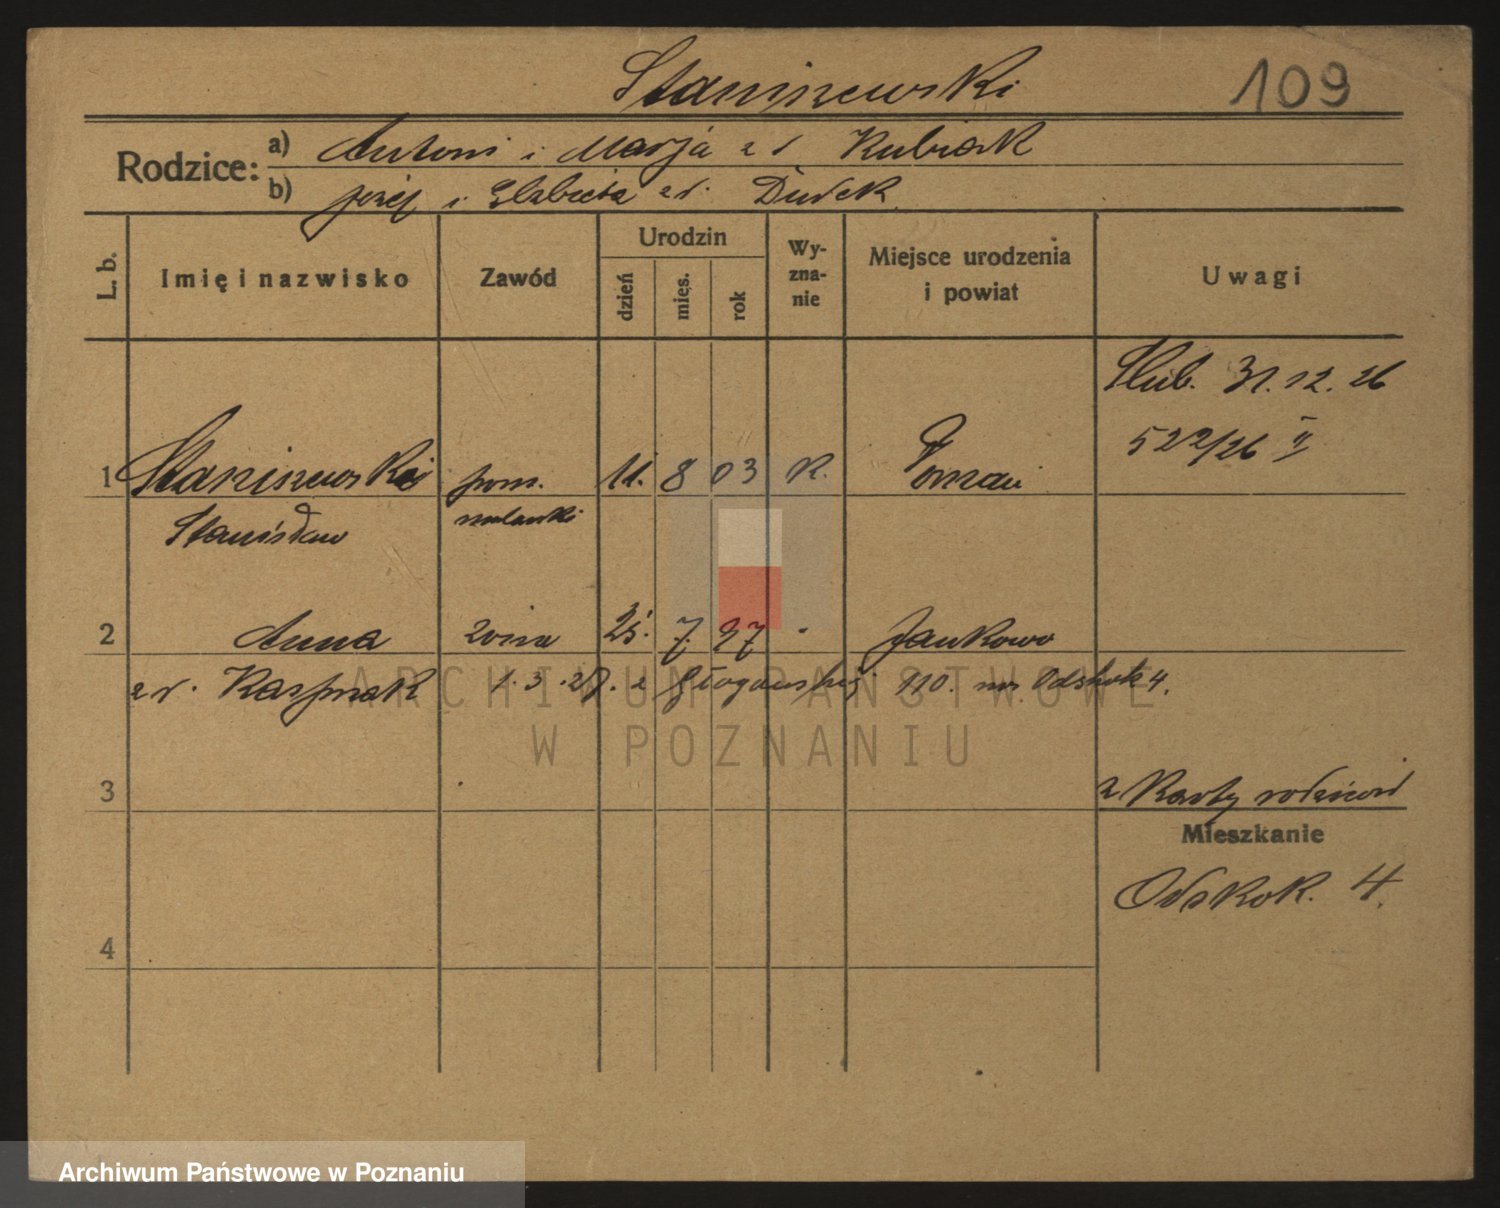 Staniszewski 109
Rodzice: a) Antoni i Marja z d. Kubiak
b) Józef i Elżbieta z d. Dudek
L. b. Imię i nazwisko Zawód Urodzin dzień mięs. rok Wy-zna-nie Miejsce urodzenia i powiat Uwagi
Ślub. 31. 12. 26
522/26 II
1 Staniszewski pom. 11. 8 03 k. Poznań
Stanisław
2 Anna żona 25. 7. 97 Jankowo
z d. Kasprzak 1. 3. 27. z Głogowskiej 110. na 4.
3 z karty rodziców
Mieszkanie
Odskok. 4.
4
ARCHIWUM PAŃSTWOWE
W POZNANIU
Archiwum Państwowe w Poznaniu